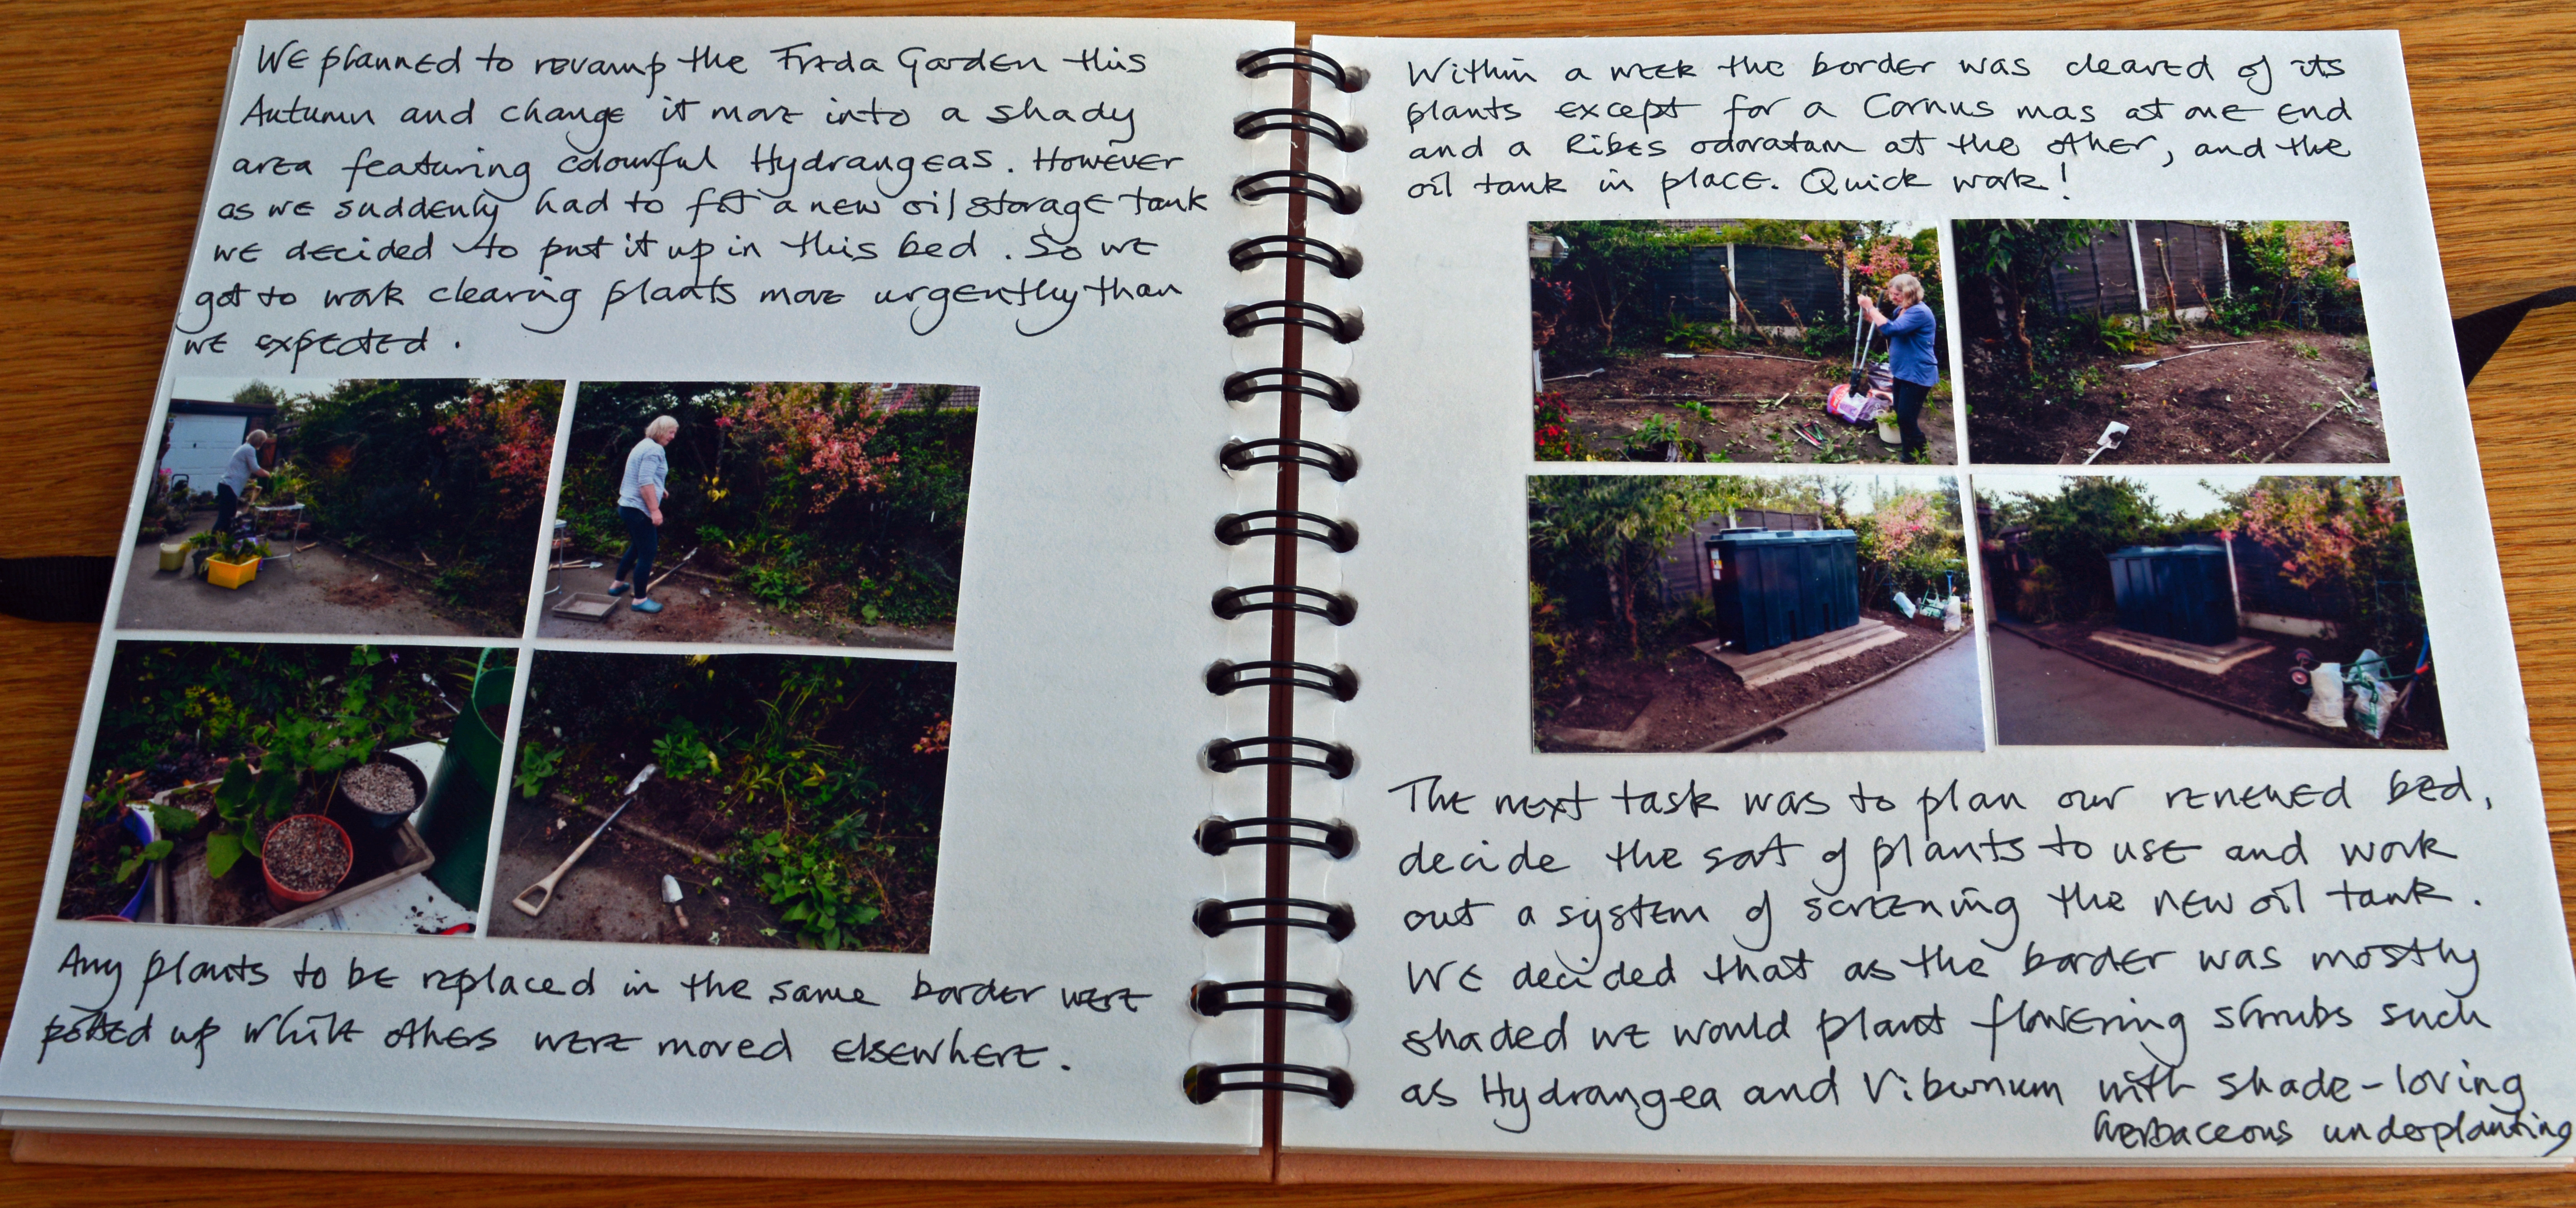 We planned to revamp the Frida Garden this
Autumn and change it more into a shady
area featuring colourful Hydrangeas. However
as we suddenly had to fit a new oil storage tank
we decided to put it up in this bed. So we
got to work clearing plants more urgently than
we expected.
Any plants to be replaced in the same border were
potted up while others were moved elsewhere.
Within a week the border was cleared of its
plants except for a Cornus mas at one end
and a Ribes odoratam at the other, and the
oil tank in place. Quick work!
The next task was to plan our renewed bed,
decide the sort of plants to use and work
out a system of screening the new oil tank.
We decided that as the border was mostly
shaded we would plant flowering shrubs such
as Hydrangea and Viburnum with shade-loving
herbaceous underplanting